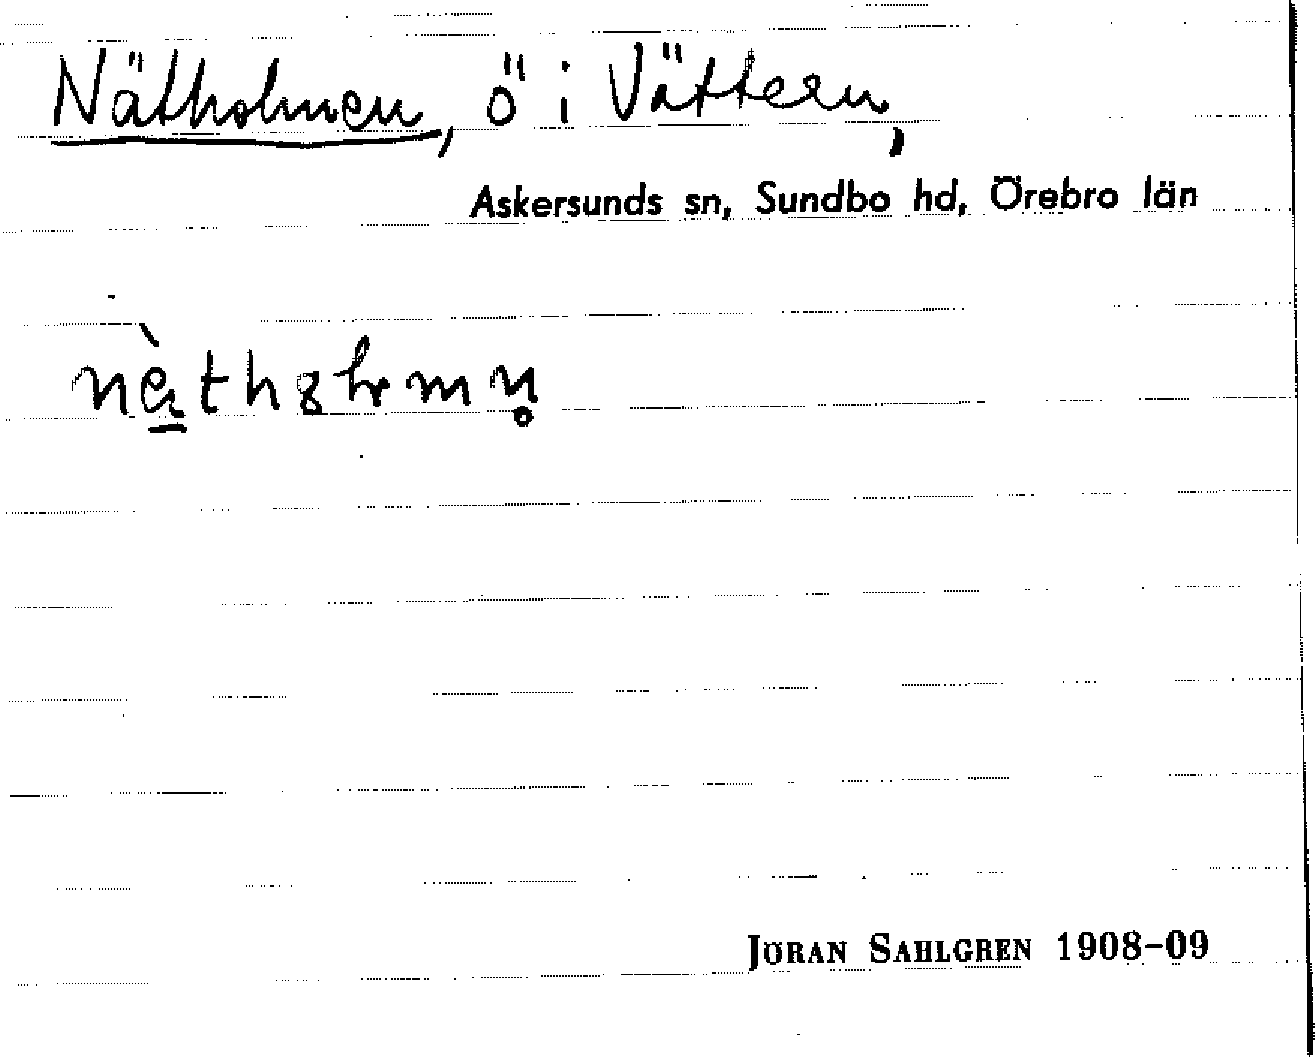 Nätholmen, ö i Vättern,
Askersunds sn, Sundbo hd, Örebro län
JÖRAN SAHLGREN 1908–09